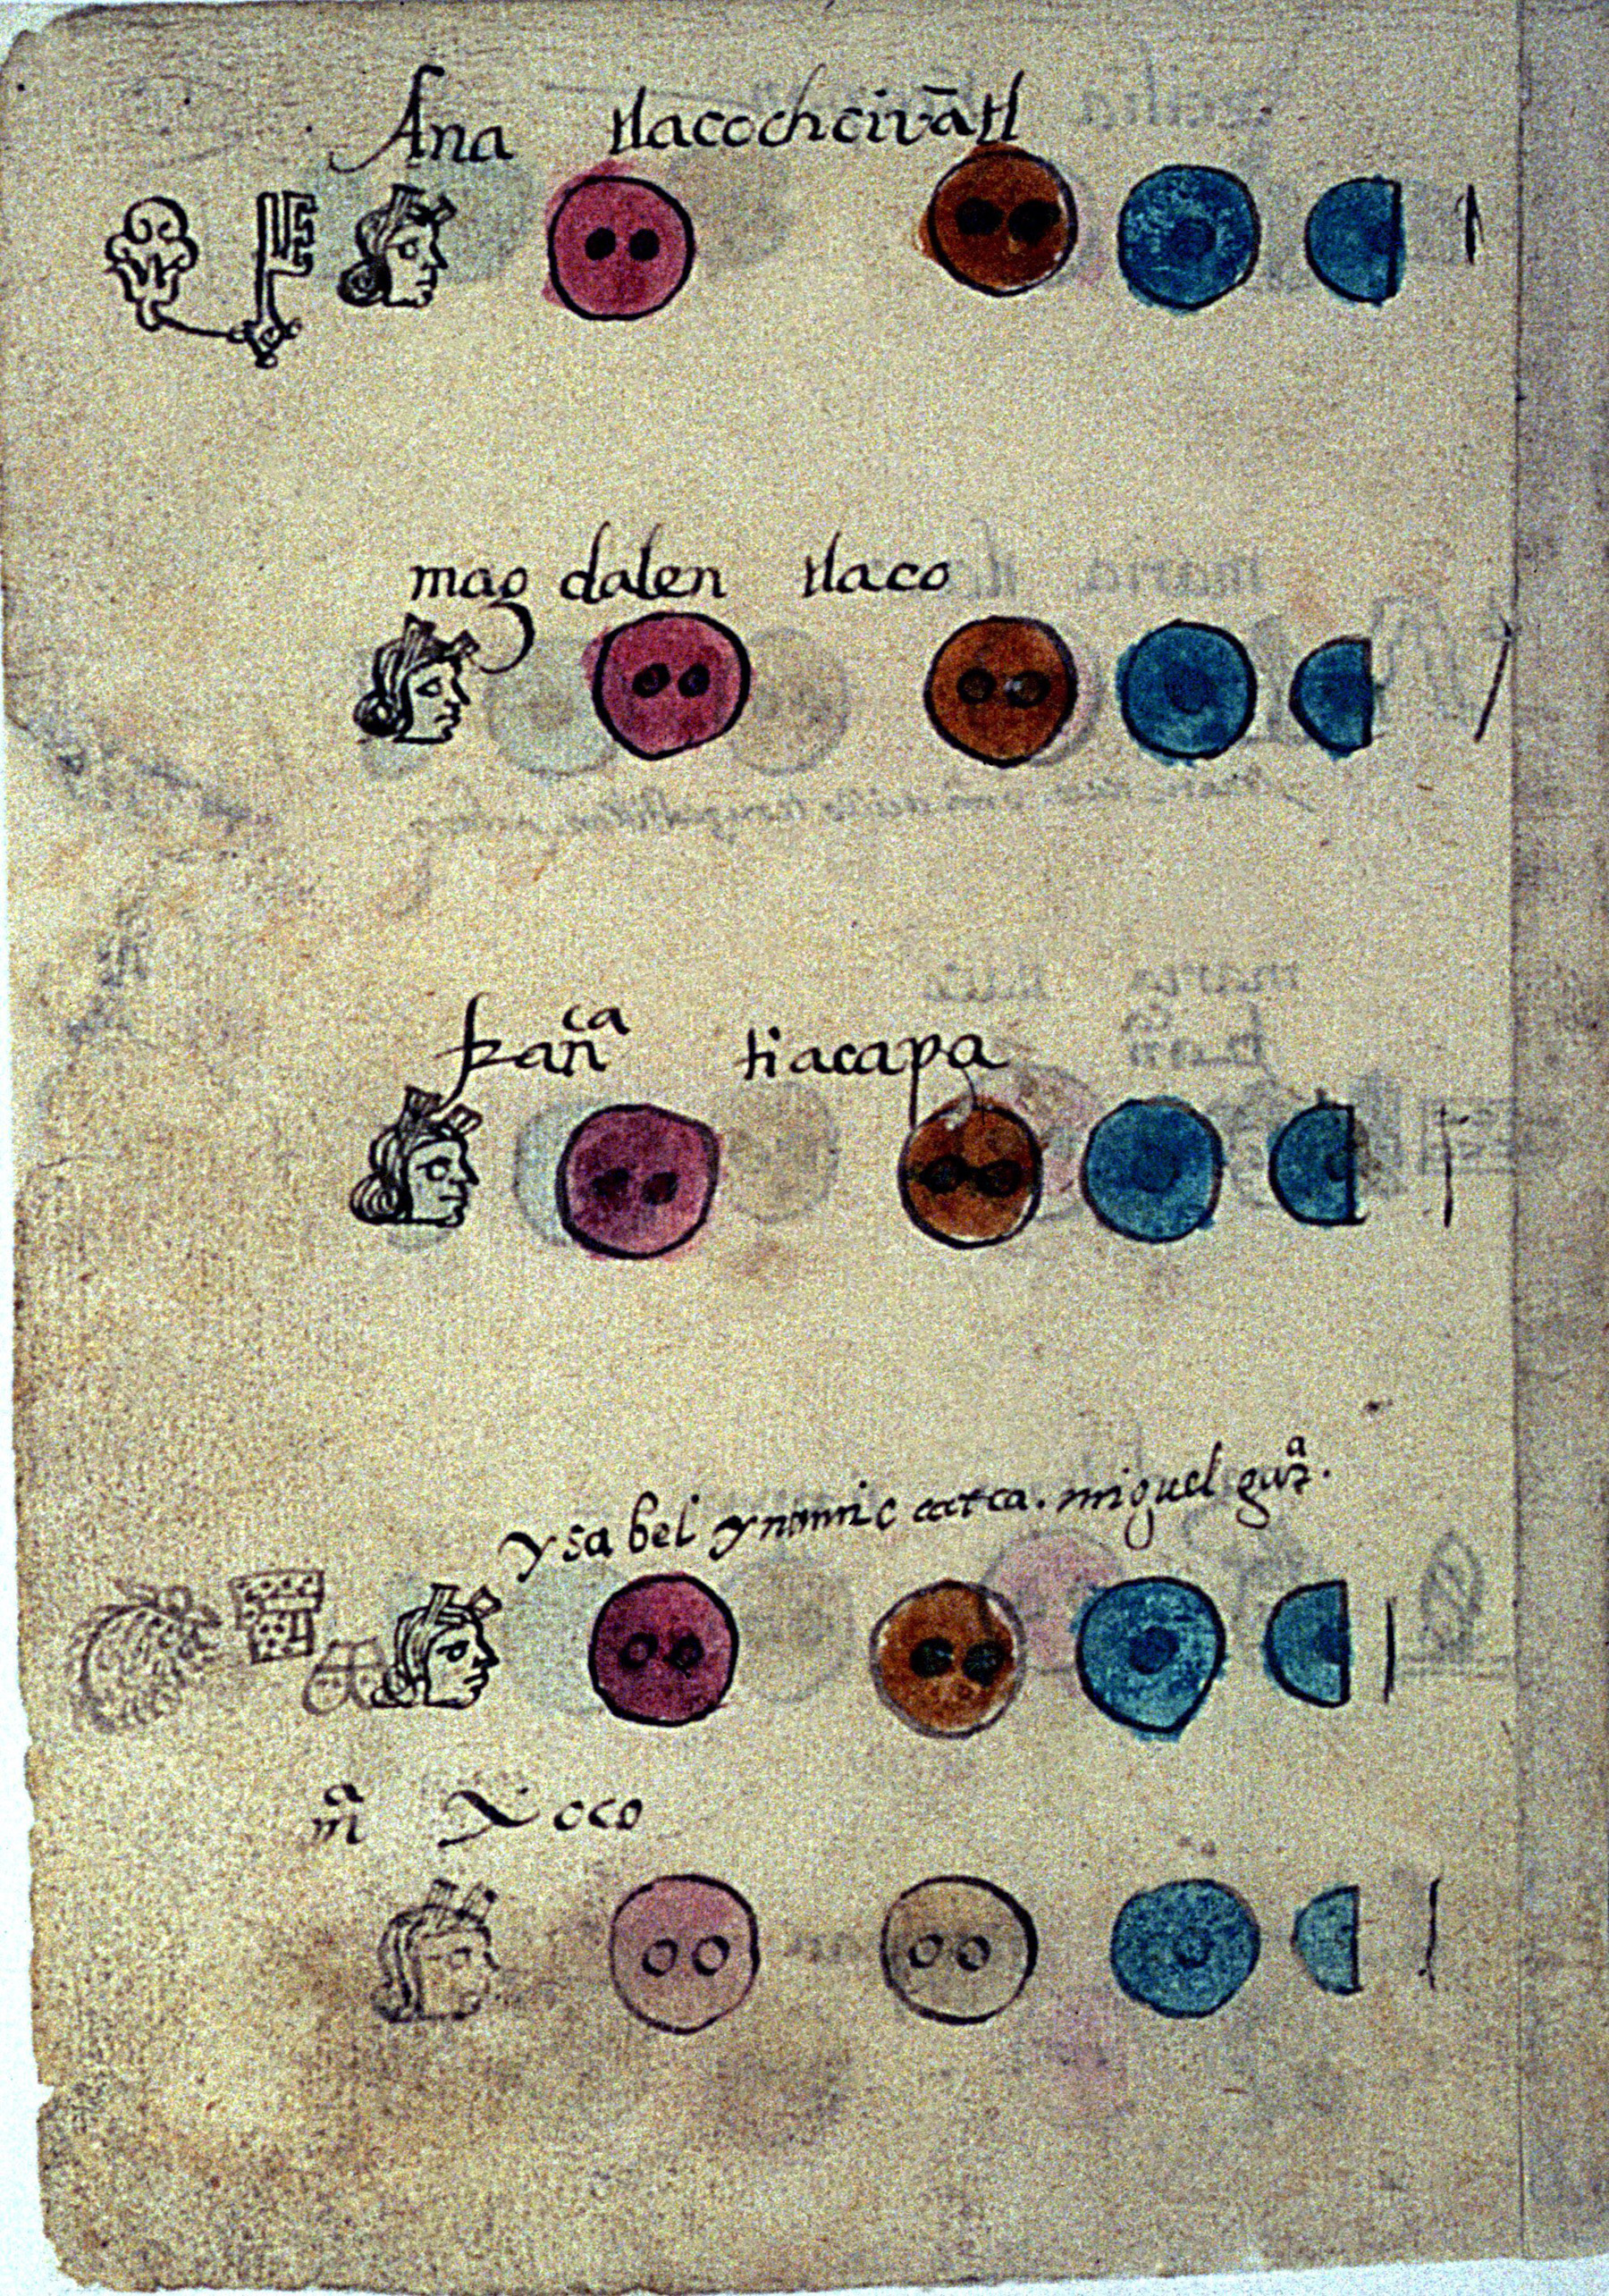 Ana tlacochcivātl
magdalen tlaco
franᶜᵃ tiacapa
ysabel ynamic catca. miguel gurᵃ.
mᵃ Xoco